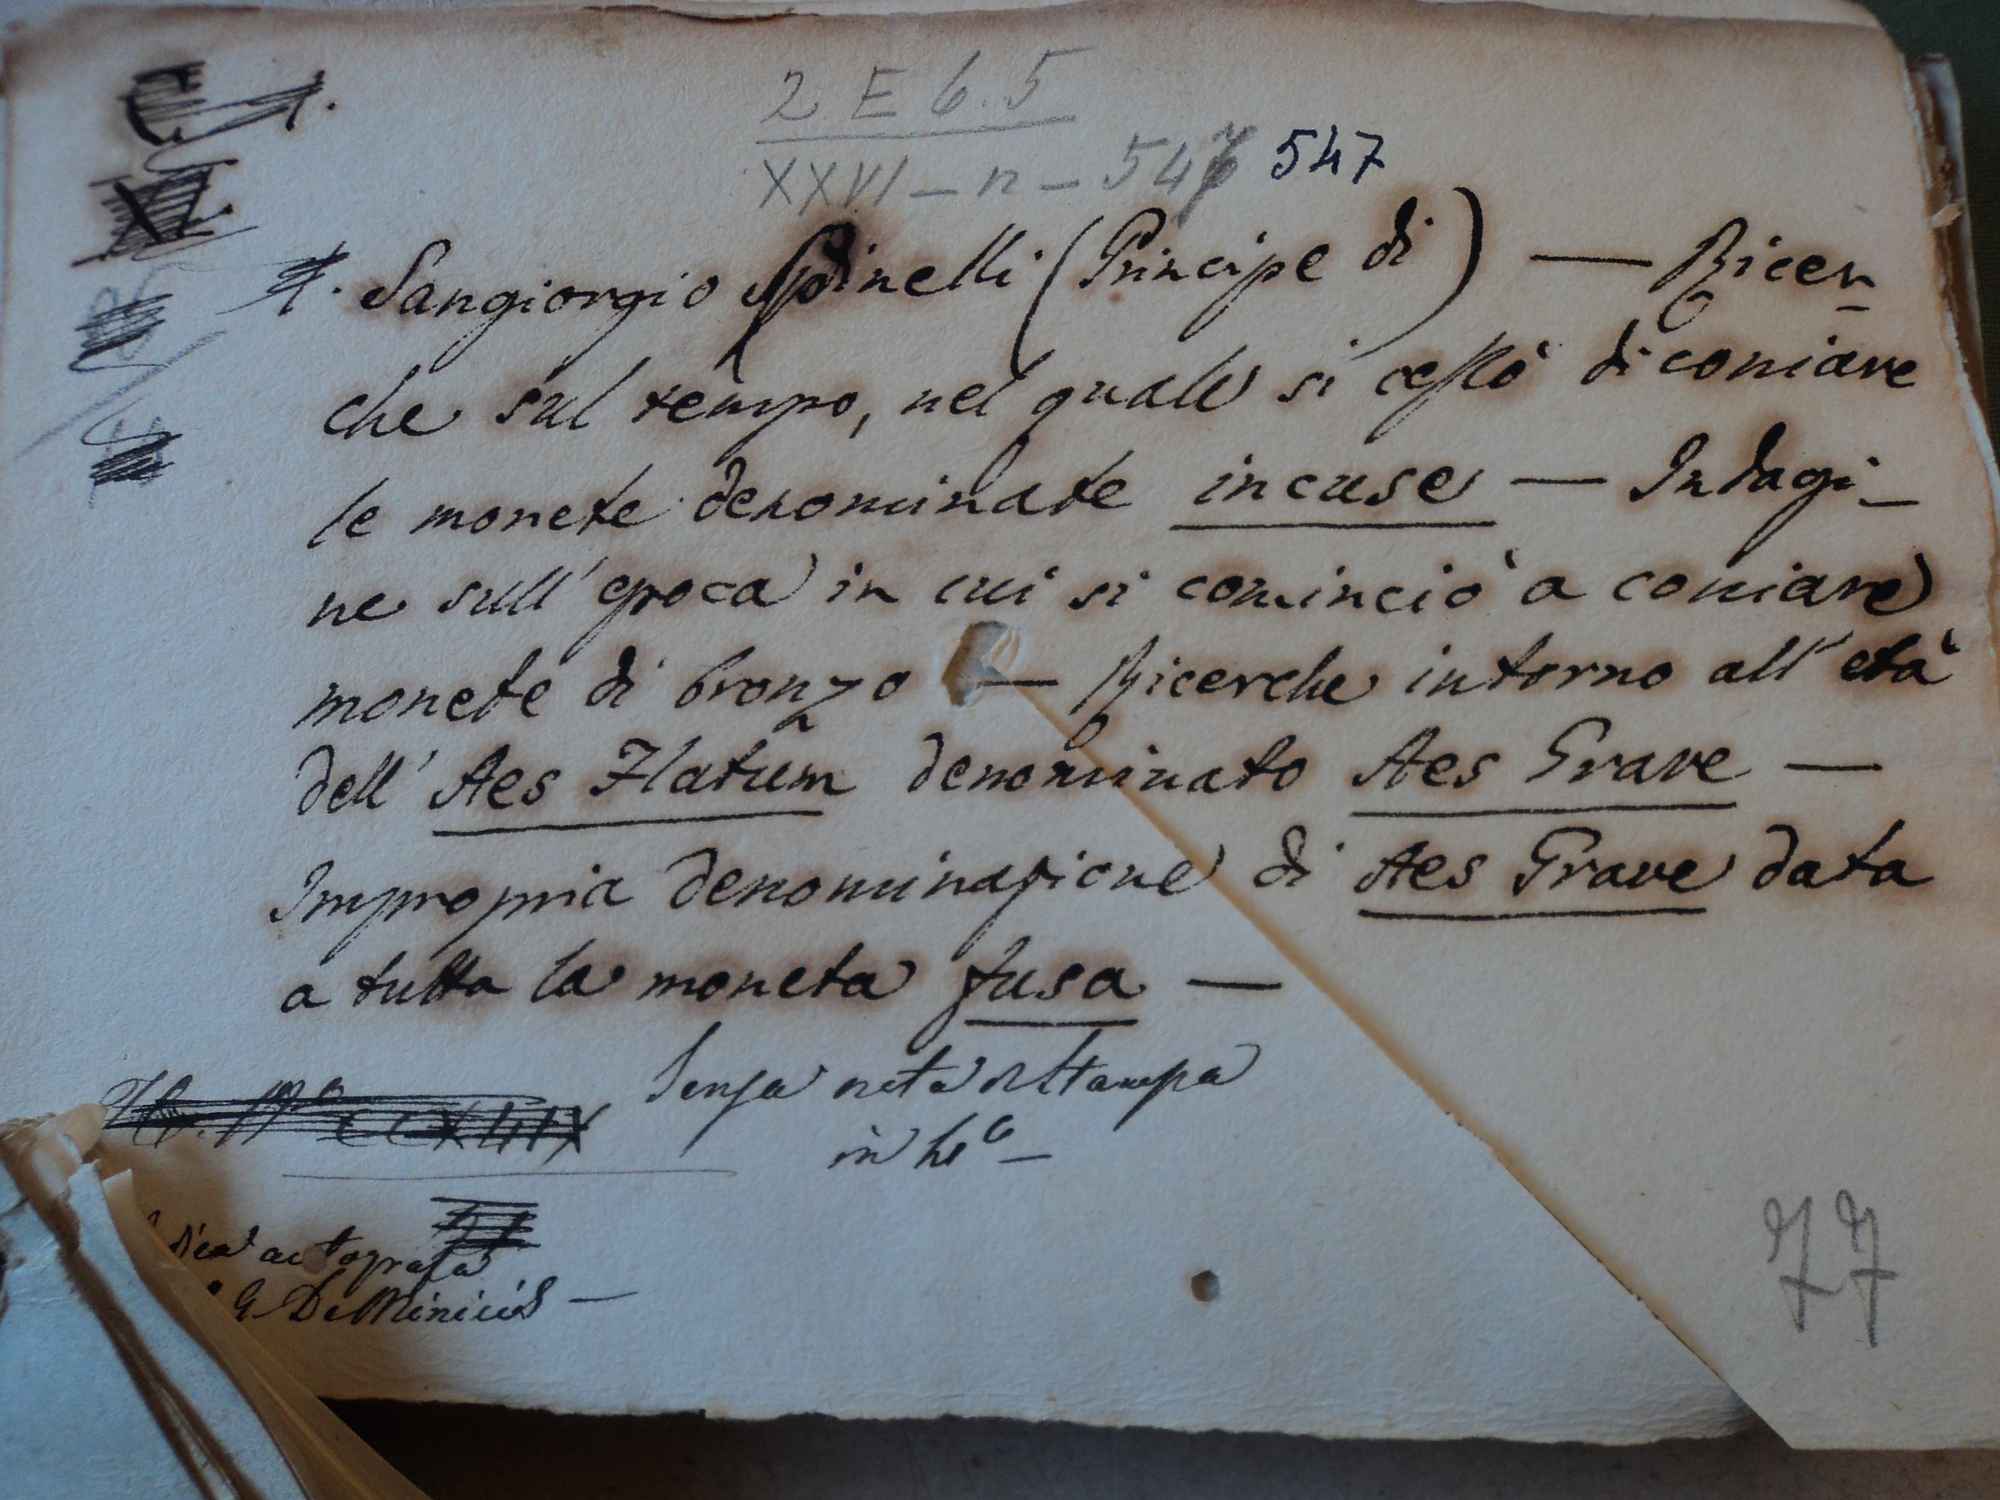 2 E 6.5
XXVI - n - 547 547
Sangiorgio Spinelli (Principe di) — Ricer-
che sul tempo, nel quale si cessò di coniare
le monete denominate incuse — Indagi-
ne sull'epoca in cui si cominciò a coniare
monete di bronzo — Ricerche intorno all'età
dell'Aes Flatum denominato Aes Grave —
Impropria denominazione di Aes Grave data
a tutta la moneta fusa —
Senza nota di Stampa
in 4o —
autografa
G. De Minicis —
77